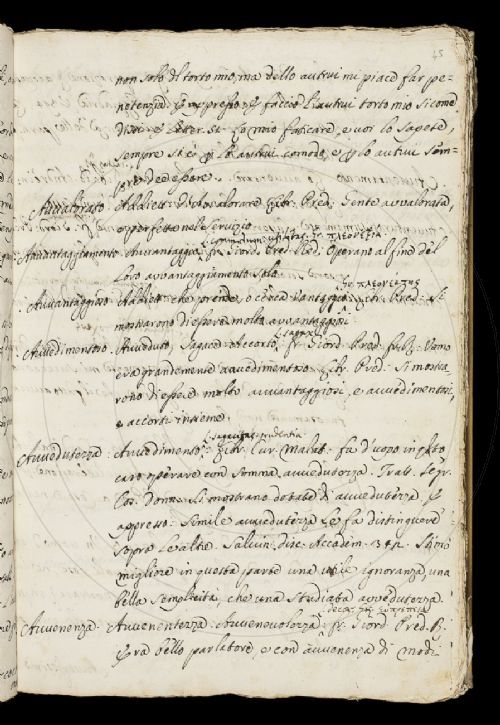 45
non solo del torto mio, ma dello altrui mi piace far pe-
netenzia. faccio l'altrui torto mio sicome
faticare, e voi lo sapete,
sempre comodo, lo altrui
essere.
Avvalorato. Addiett. Da avvalorare. Libr. Pred. Gente avvalorata,
e perfetta nel servizio
Avvantaggiamento. Avvantaggio. Fr. Giord. Pred. Red. Operano al fine del
loro avvantaggiamento solo
Gr. πλεονέκτης
Avvantaggioso. Addiett. che prende, o cerca vantaggio. Libr. Pred. Si
mostrarono d'essere molto avvantaggiosi
sagax
Avvedimentoso. Avveduto, Sagace, accorto. Fr. Giord. Pred. Uomo
era grandemente avvedimentoso. Libr. Pred. Si mostra-
rono di essere molto avvantaggiosi, e avvedimentosi,
e accorti insieme.
sagacitas, prudentia
Avvedutezza. Avvedimento. Libr. Cur. Malat. fa d'uopo in questo
caso operare con somma avvedutezza. Tratt. Segr.
Cos. Donn. Si mostrano dotate di avvedutezza. E
appresso: Simile avvedutezza le fa distinguere
sopra le altre. Salvin. disc. Accadem. Stimo
migliore in questa parte una utile ignoranza, una
bella semplicità, che una studiata avvedutezza
decor,
Avvenenza. Avvenentezza. Avvenevolezza. Fr. Giord. Pred. R.
Era bello parlatore, e con avvenenza di modi